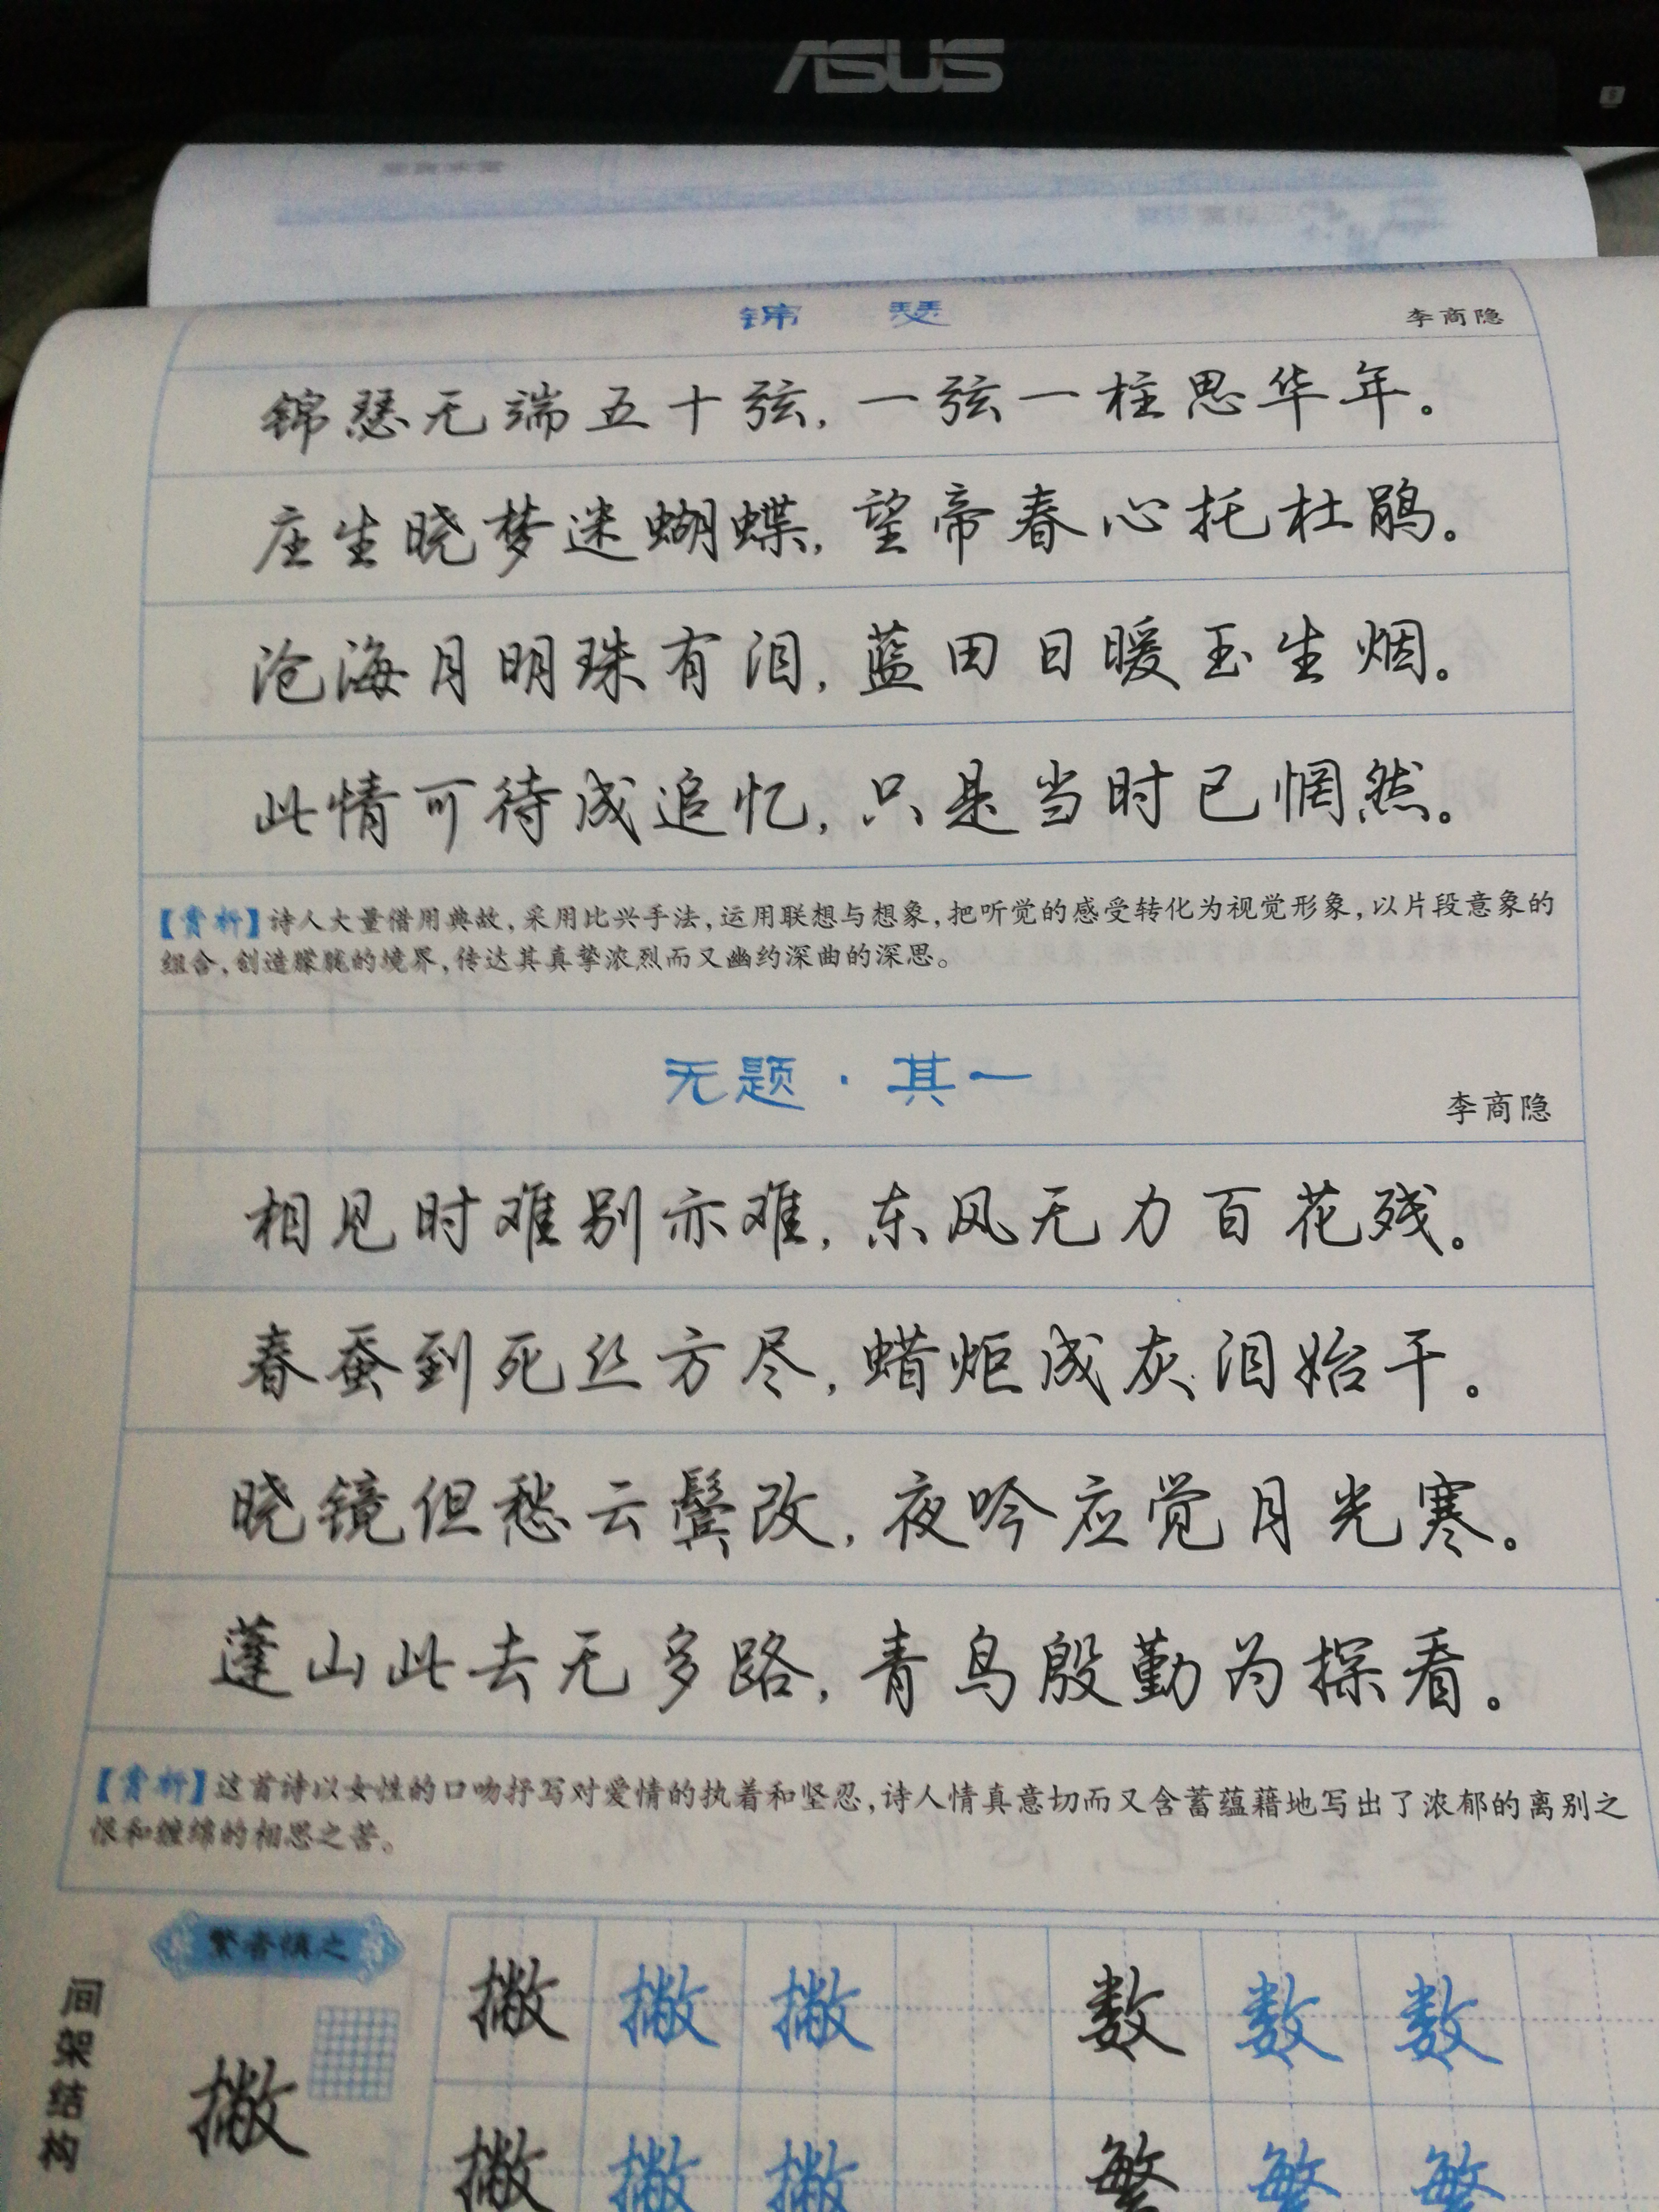 ASUS
锦 瑟
李商隐
锦瑟无端五十弦,一弦一柱思华年。
庄生晓梦迷蝴蝶,望帝春心托杜鹃。
沧海月明珠有泪,蓝田日暖玉生烟。
此情可待成追忆,只是当时已惘然。
【赏析】诗人大量借用典故,采用比兴手法,运用联想与想象,把听觉的感受转化为视觉形象,以片段意象的
组合,创造朦胧的境界,传达其真挚浓烈而又幽约深曲的深思。
无题·其一
李商隐
相见时难别亦难,东风无力百花残。
春蚕到死丝方尽,蜡炬成灰泪始干。
晓镜但愁云鬓改,夜吟应觉月光寒。
蓬山此去无多路,青鸟殷勤为探看。
【赏析】这首诗以女性的口吻抒写对爱情的执着和坚忍,诗人情真意切而又含蓄蕴藉地写出了浓郁的离别之
恨和缠绵的相思之苦。
间架结构
繁者慎之
撇
撇 撇 撇 数 数 数
撇 撇 撇 繁 繁 繁